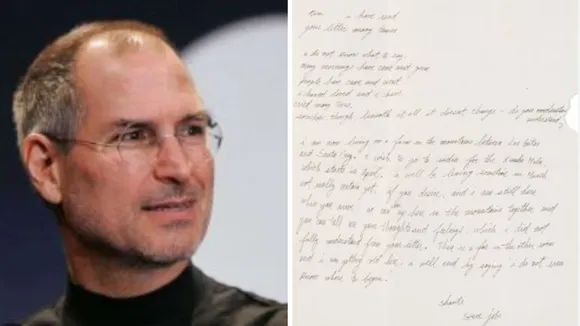 tim i have read
your letter many times
i do not know what to say.
many mornings have come and gone
people have came and went
i have loved and i have
cried many times.
somehow, though, beneath it all it doesnt change - do you understand?
i am now living on a farm in the mountains between Los Gatos
and Santa Cruz. i wish to go to india for the
which starts in april. i will be leaving sometime in March
not really certain yet. if you desire, and i am still here
when you come, we can be here in the mountains together and
you can tell me your thoughts and feelings which i did not
fully understand from your letter. There is a fire in the other room
and i am getting cold here. i will end by saying i do not even
know where to begin.
shanti
steve jobs